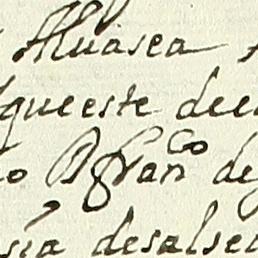 Huasca
queeste dee
o D fran co de
sia desalse